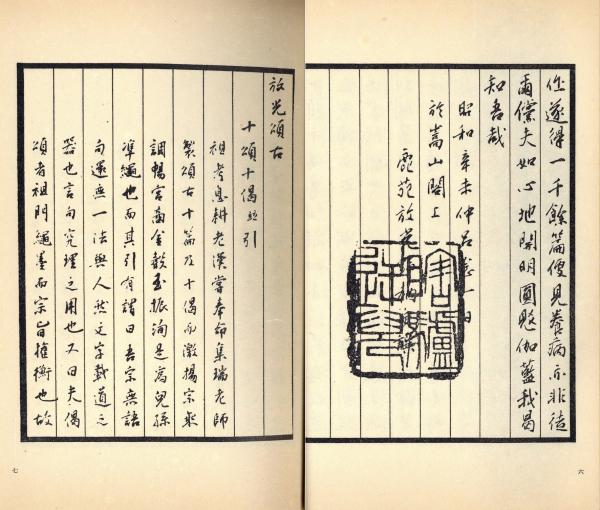 位遂得一千餘篇便見養病亦非徒
爾儻夫如心地開明圓照伽藍我曷
知吾哉
昭和辛未仲呂
於嵩山閣上
鹿苑放光
六
放光頌古
十頌十偈並引
祖考息耕老漢嘗奉命集瑞老師
製頌古十篇及十偈而激揚宗乘
調暢宮商金聲玉振洵是為兒孫
準繩也而其引有謂曰吾宗無語
句還無一法與人然文字載道之
器也言句究理之用也又曰夫偈
頌者祖門繩墨而宗旨權衡也故
七